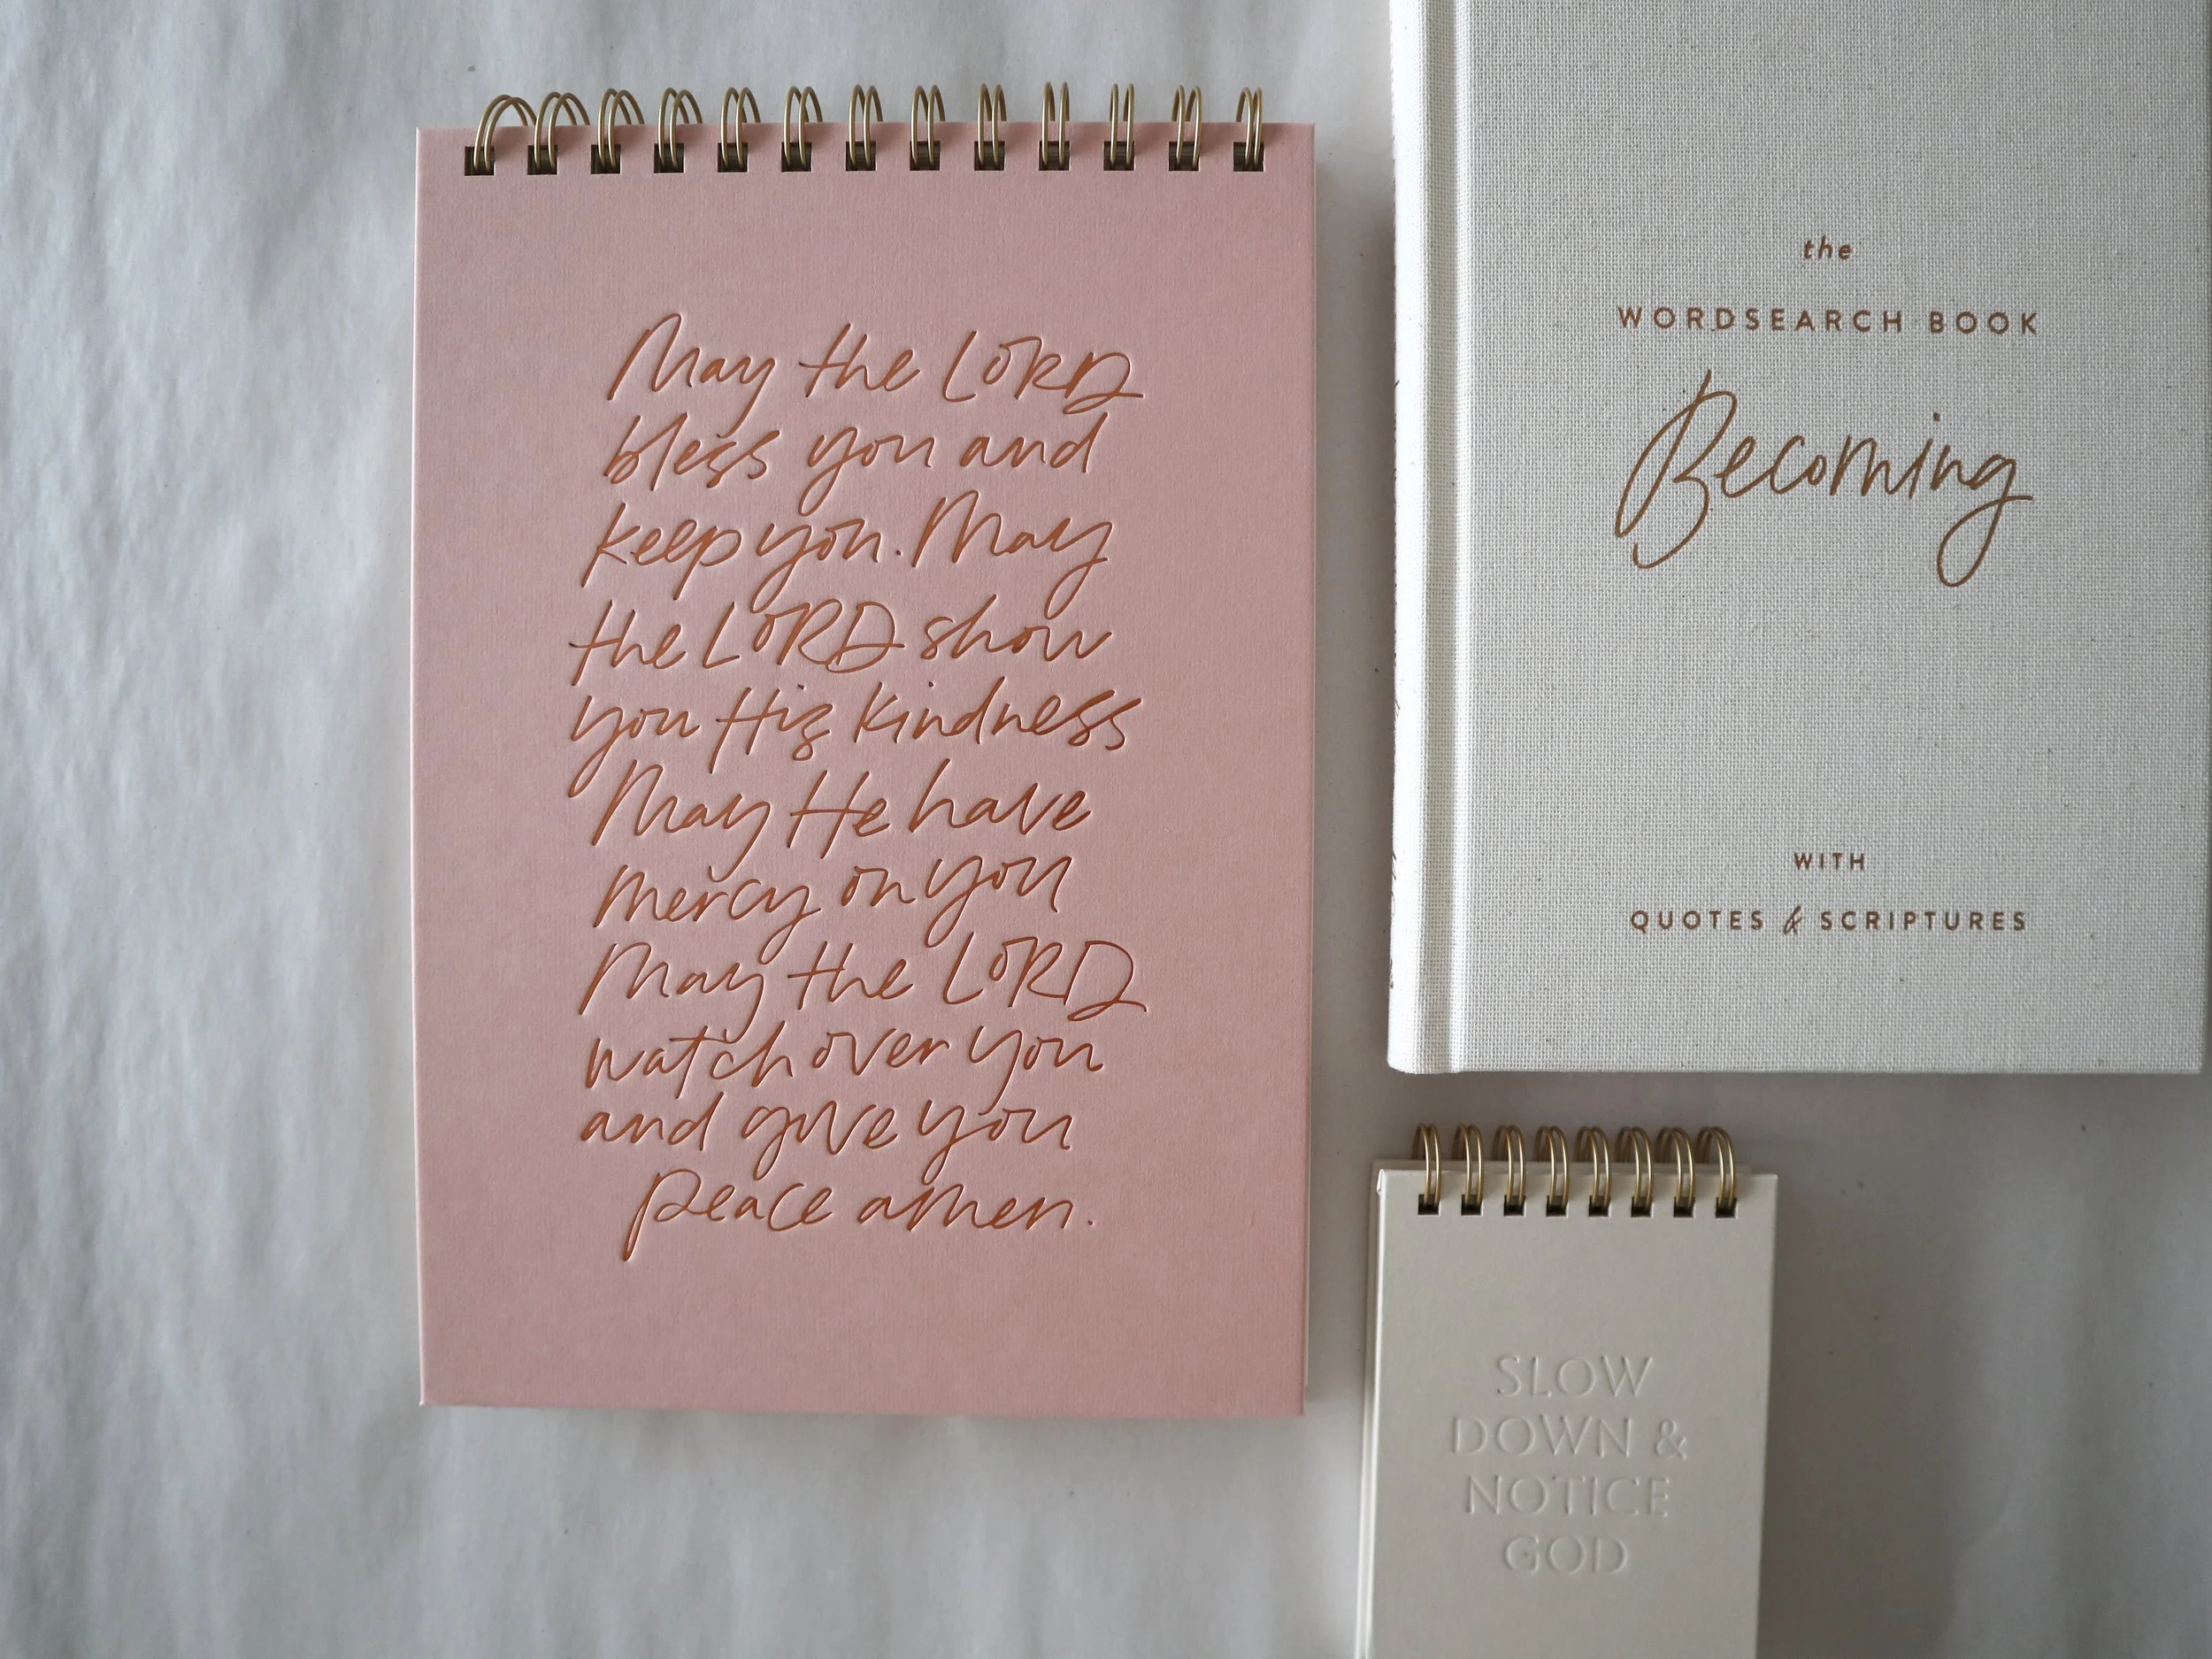 May the LORD
bless you and
keep you. May
the LORD show
you His kindness
May He have
mercy on you
May the LORD
watch over you
and give you
peace amen.
the
WORDSEARCH BOOK
Becoming
WITH
QUOTES & SCRIPTURES
SLOW
DOWN &
NOTICE
GOD